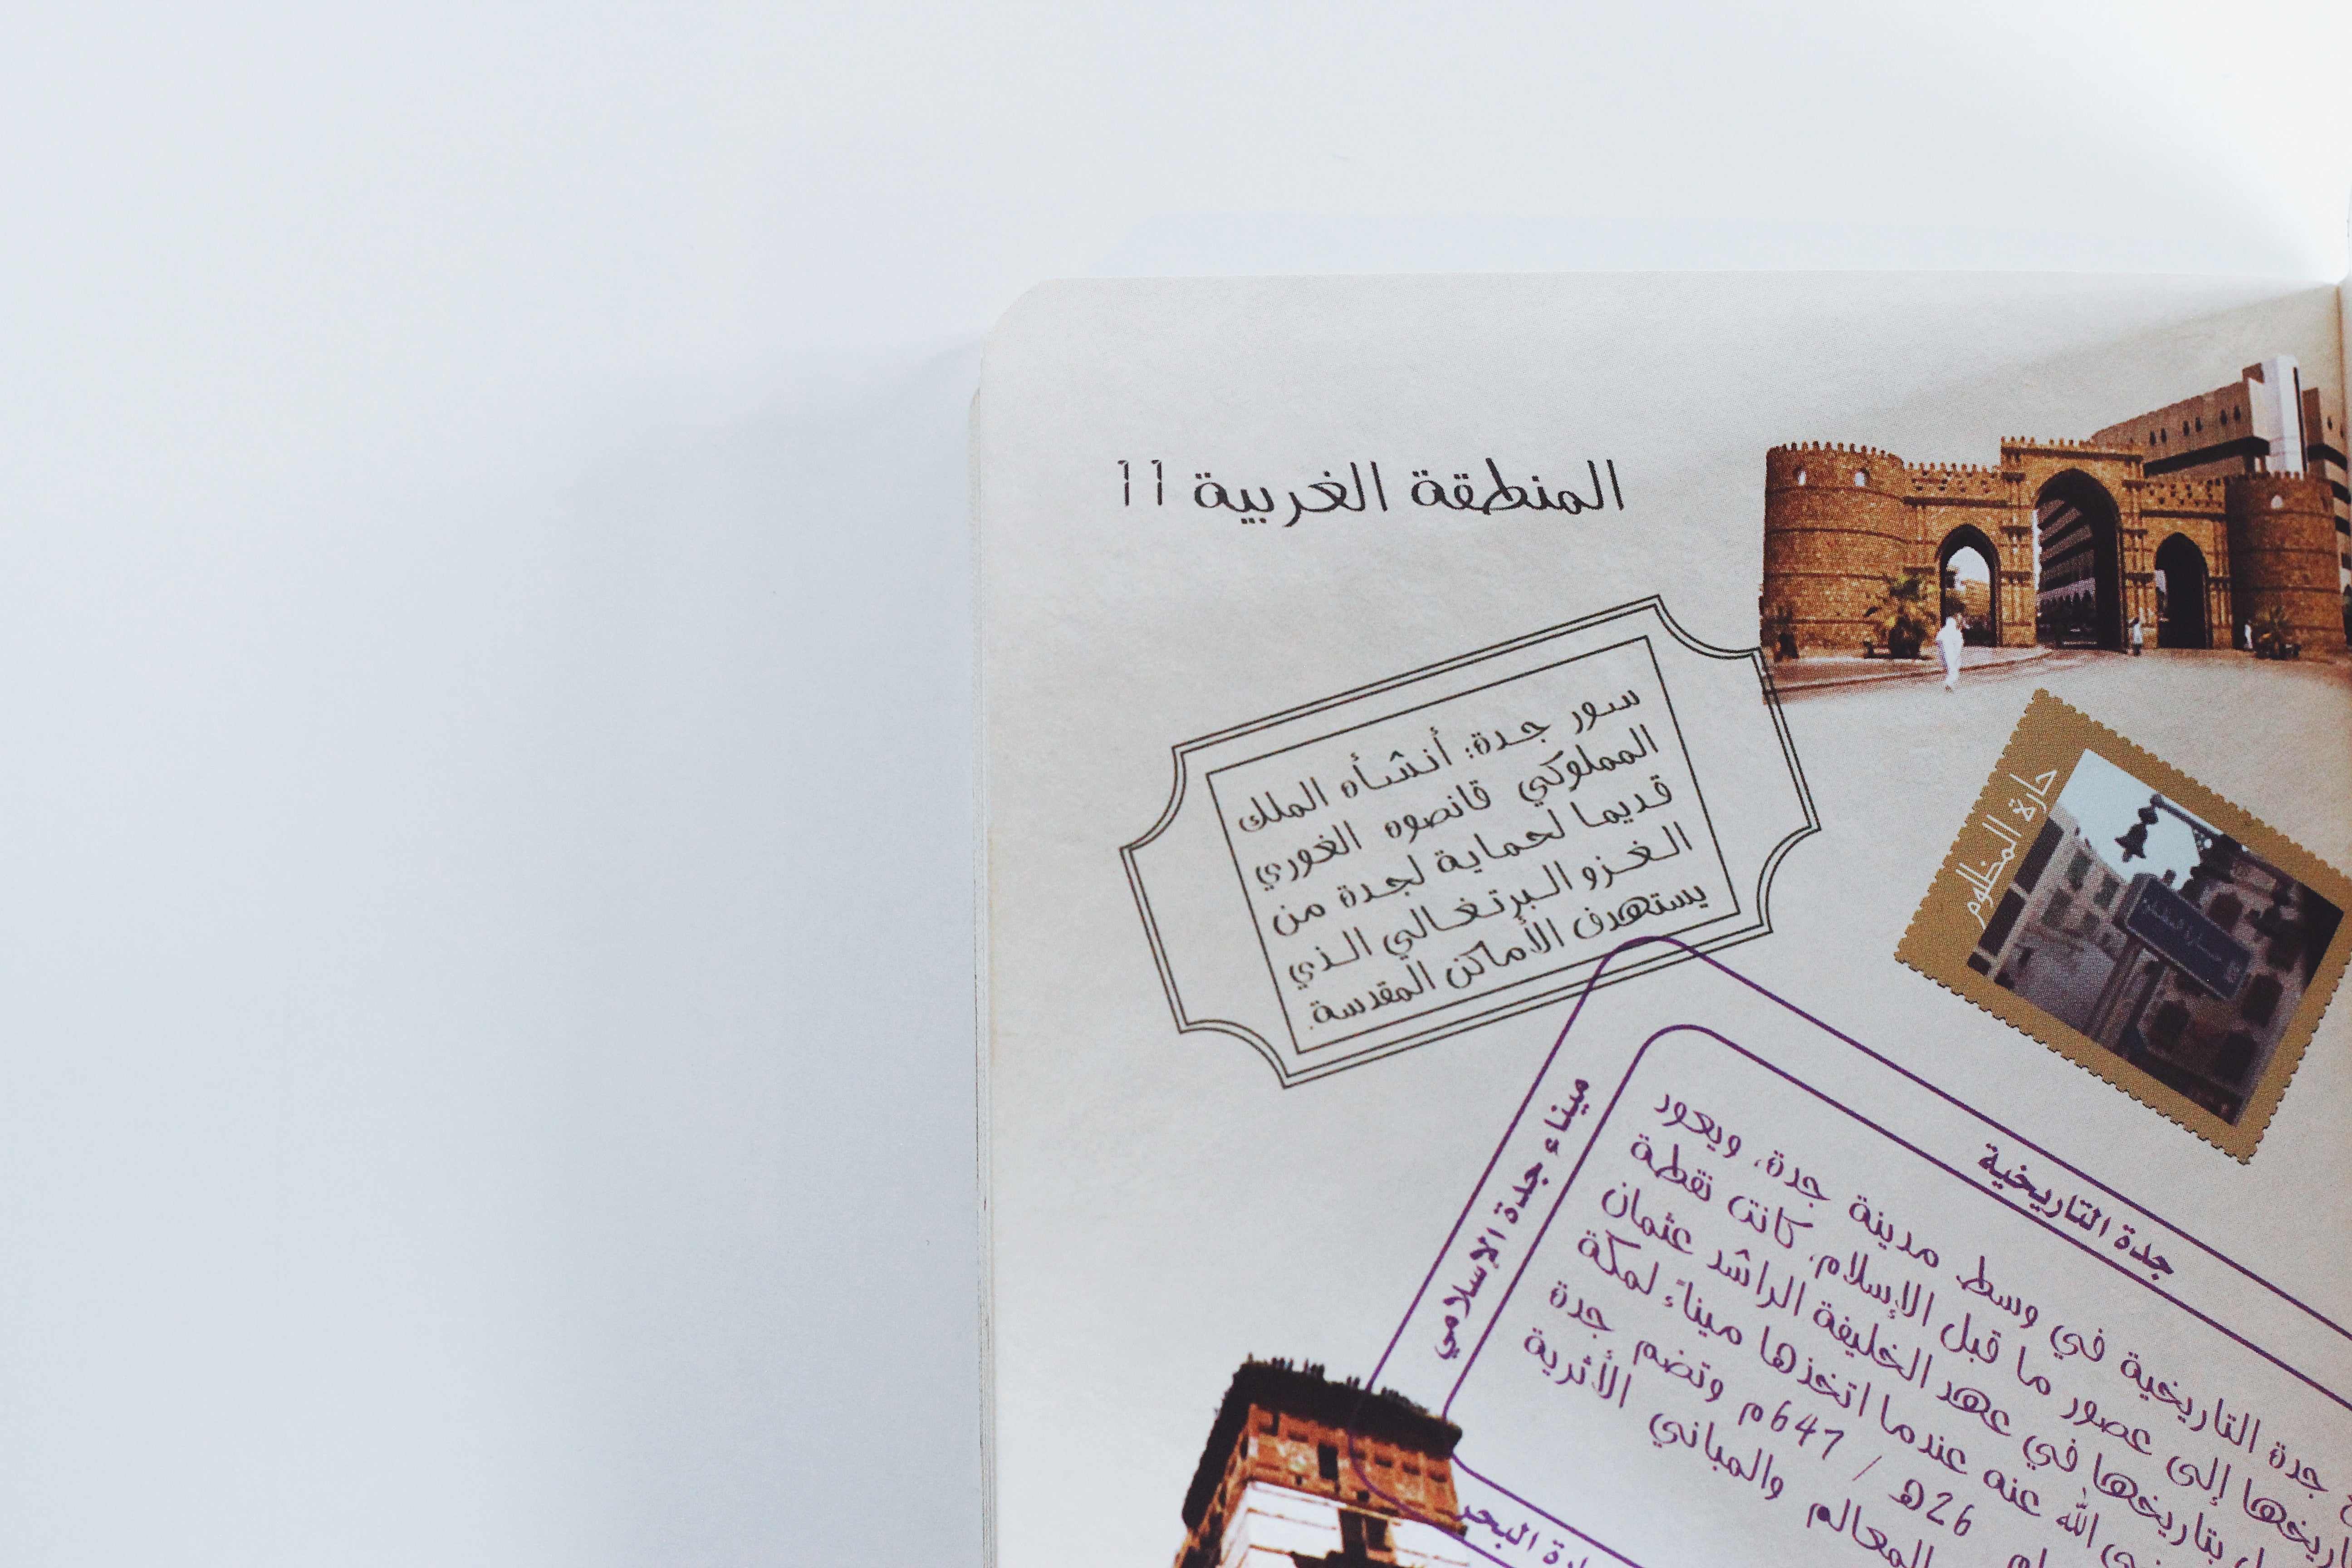 المنطقة الغربية 11
سور جدة: أنشأه الملك
المملوكي قانصوه الغوري
قديما لحماية لجدة من
الغزو البرتغالي الذي
يستهدف الأماكن المقدسة.
حارة المظلوم
جدة التاريخية
ميناء جدة الإسلامي
جدة التاريخية في وسط مدينة جدة، ويعود
إلى عصور ما قبل الإسلام، كانت نقطة
بتاريخها في عهد الخليفة الراشد عثمان
الله عنه عندما اتخذها ميناءً لمكة
26هـ / 647م وتضم جدة
المعالم والمباني الأثرية
البحر